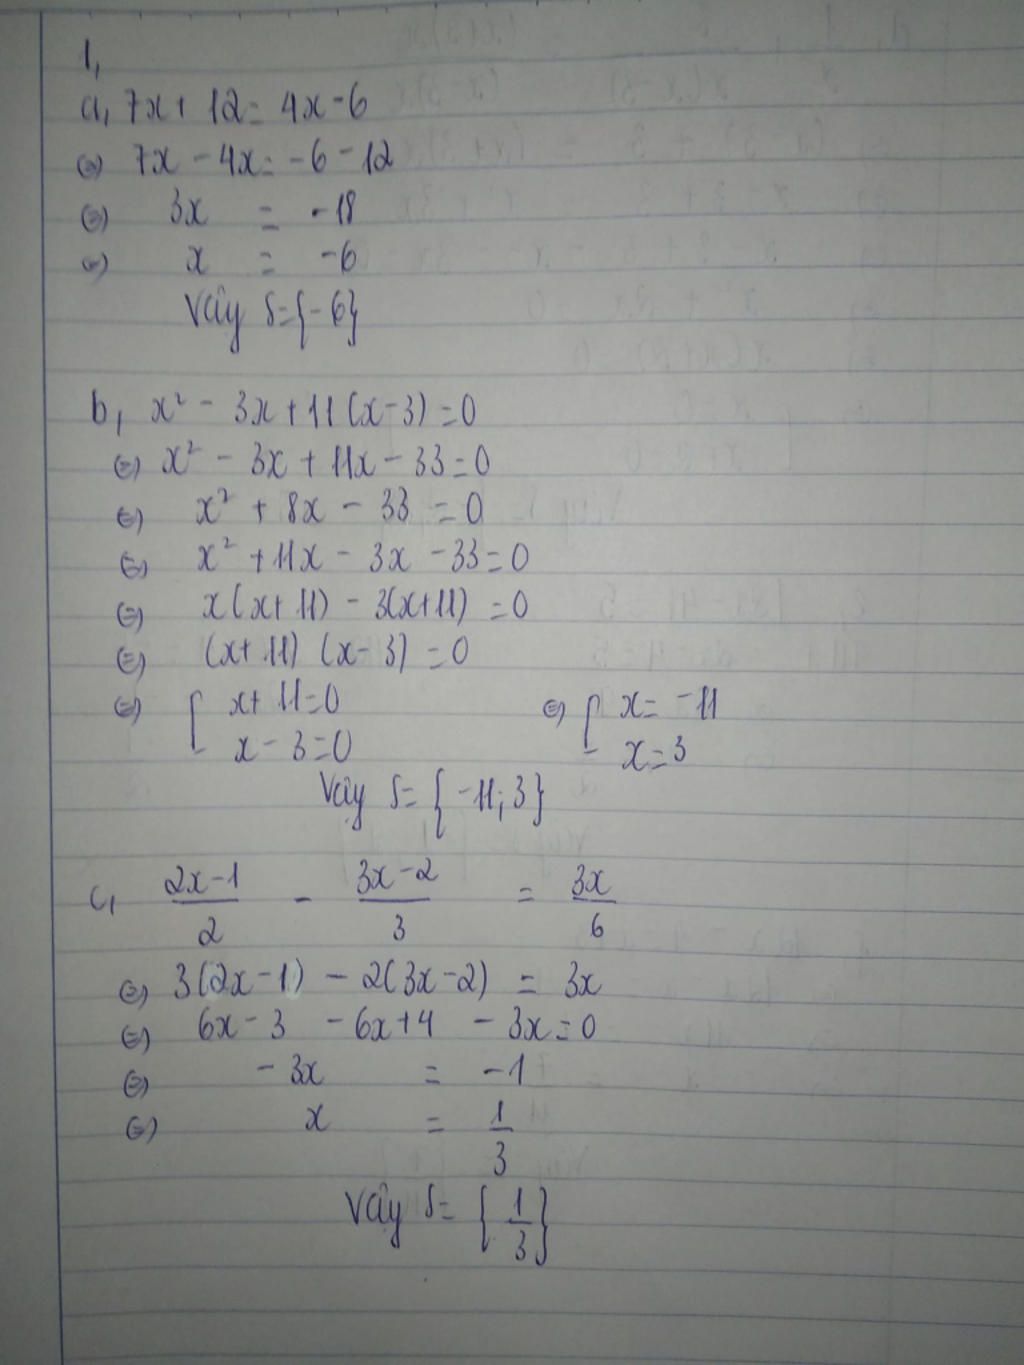 1,
a, 7x + 12 = 4x - 6
⇔ 7x - 4x = -6 - 12
⇔ 3x = -18
⇔ x = -6
Vậy S = {-6}
b, x² - 3x + 11(x - 3) = 0
⇔ x² - 3x + 11x - 33 = 0
⇔ x² + 8x - 33 = 0
⇔ x² + 11x - 3x - 33 = 0
⇔ x(x + 11) - 3(x + 11) = 0
⇔ (x + 11) (x - 3) = 0
⇔ [ x + 11 = 0 ⇔ [ x = -11
x - 3 = 0 x = 3
Vậy S = {-11; 3}
c, (2x - 1)/2 - (3x - 2)/3 = 3x/6
⇔ 3(2x - 1) - 2(3x - 2) = 3x
⇔ 6x - 3 - 6x + 4 - 3x = 0
⇔ -3x = -1
⇔ x = 1/3
Vậy S = {1/3}